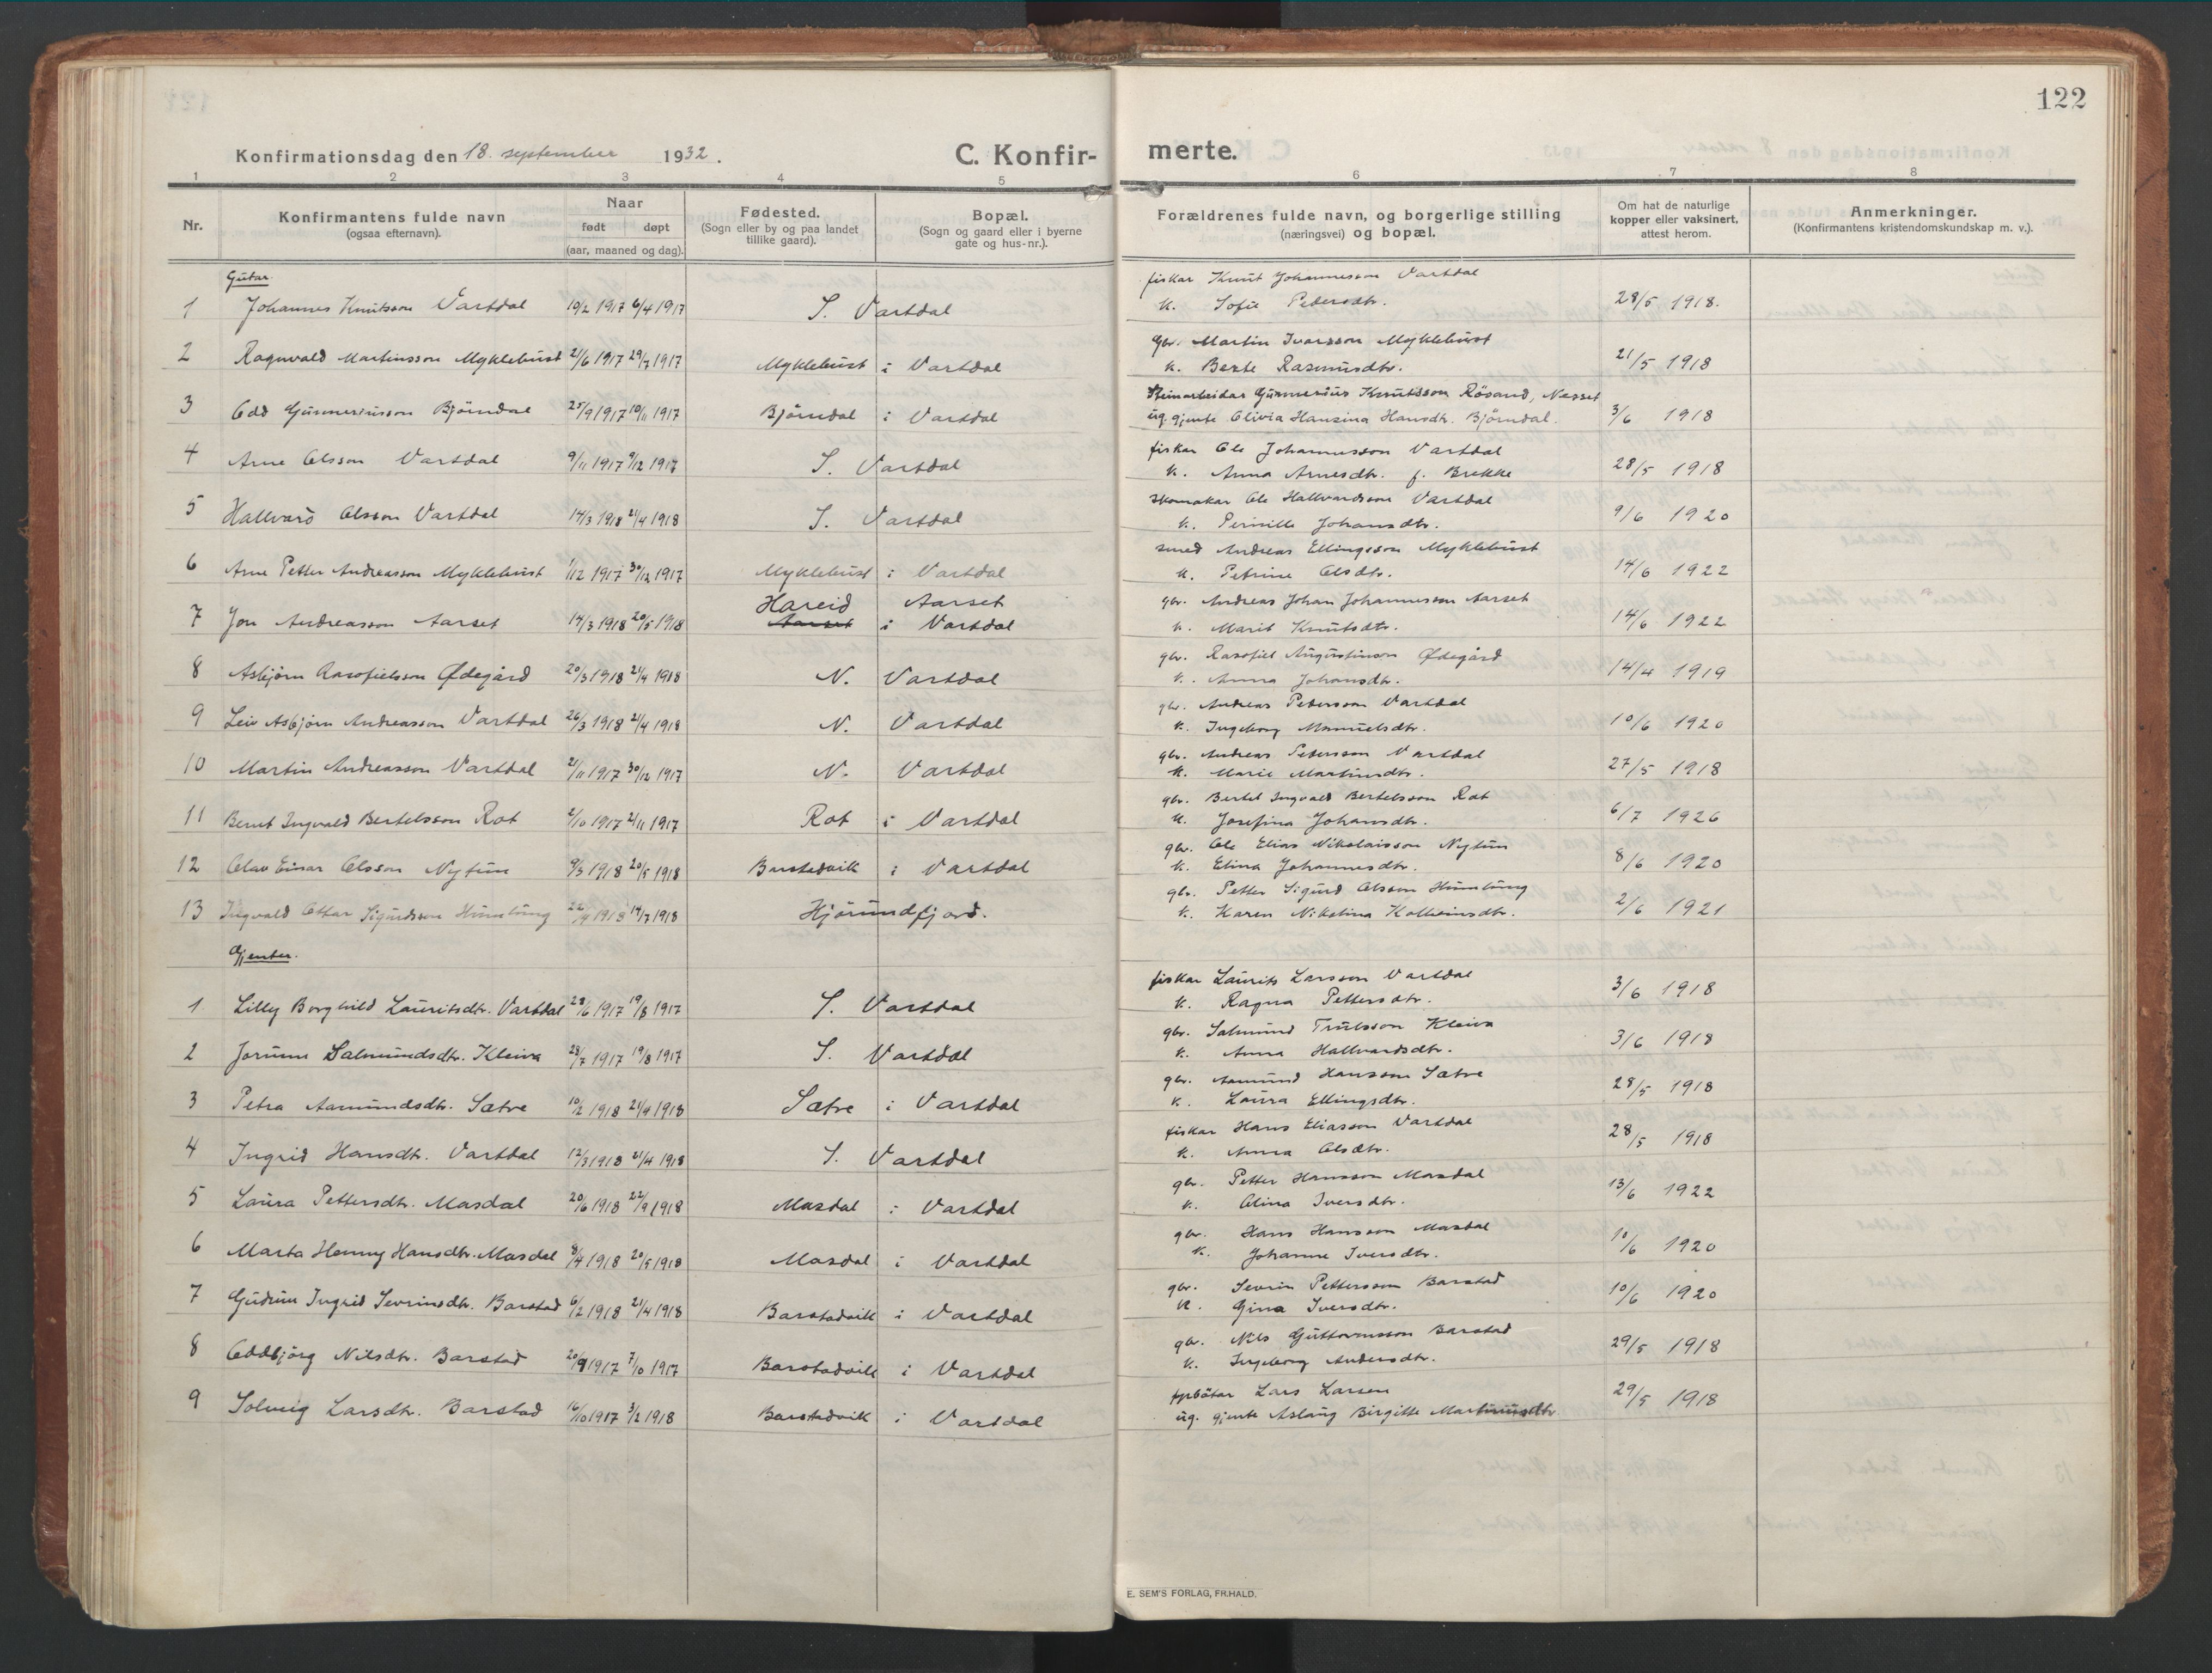 122
Konfirmationsdag den 18. september 1932.
C. Konfir-
merte.
1 2 3 4 5 6 7 8
Nr.
Konfirmantens fulde navn
(ogsaa efternavn).
Naar
født døpt
(aar, maaned og dag).
Fødested.
(Sogn eller by og paa landet
tillike gaard).
Bopæl.
(Sogn og gaard eller i byerne
gate og hus-nr.).
Forældrenes fulde navn, og borgerlige stilling
(næringsvei) og bopæl.
Om hat de naturlige
kopper eller vaksinert,
attest herom.
Anmerkninger.
(Konfirmantens kristendomskundskap m. v.).
Gutar.
fiskar Knut Johannesson Vartdal
1 Johannes Knutsson Vartdal 19/2 1917 6/4 1917 S. Vartdal k. Sofie Pedersdtr. 28/5 1918.
gbr. Martin Ivarsson Myklebust
2 Ragnvald Martinsson Myklebust 2/6 1917 29/7 1917 Myklebust i Vartdal k. Berte Rasmusdtr. 21/5 1918
Steinarbeidar Gunnerius Knutsson Røsand, Nesset
3 Odd Gunneriusson Bjørndal 25/9 1917 10/11 1917 Bjørndal i Vartdal ug. gjente Olivia Hansina Hansdtr. Bjørndal. 3/6 1918
fiskar Ole Johannusson Vartdal
4 Arne Olsson Vartdal 9/11 1917 9/12 1917 S. Vartdal k. Anna Arnesdtr. f. Brekke 28/5 1918
skomakar Ole Hallvardsson Vartdal
5 Hallvard Olsson Vartdal 14/3 1918 21/4 1918 S. Vartdal k. Pernille Johansdtr. 9/6 1920
smed Andreas Ellingsson Myklebust
6 Arne Petter Andreasson Myklebust 1/12 1917 30/12 1917 Myklebust i Vartdal k. Petrine Olsdtr. 14/6 1922
Hareid Aarset gbr. Andreas Johan Johannesson Aarset
7 Jon Andreasson Aarset 14/3 1918 20/5 1918 Aarset i Vartdal k. Marit Knutsdtr. 14/6 1922
gbr. Rasofiel Augustinson Ødegård
8 Asbjørn Rasofielsson Ødegård 20/3 1918 21/4 1918 N. Vartdal k. Anna Johansdtr. 14/4 1919
gbr. Andreas Pedersson Vartdal
9 Leiv Asbjørn Andreasson Vartdal 26/3 1918 21/4 1918 N. Vartdal k. Ingeborg Manuelsdtr. 10/6 1920
gbr. Andreas Pedersson Vartdal
10 Martin Andreasson Vartdal 21/11 1917 30/12 1917 N. Vartdal k. Marie Martinsdtr. 27/5 1918
gbr. Bertel Ingvald Bertelsson Rot
11 Bernt Ingvald Bertelsson Rot 2/10 1917 2/11 1917 Rot i Vartdal k. Josefina Johansdtr. 6/7 1926
gbr. Ole Elias Nikolaisson Nytun
12 Olav Einar Olsson Nytun 9/3 1918 20/5 1918 Barstadvik i Vartdal k. Elina Johannesdtr. 8/6 1920
gbr. Petter Sigurd Olsson Humlung
13 Ingvald Ottar Sigurdsson Humlung 22/4 1918 14/7 1918 Hjørundfjord. k. Karen Nikolina Kolbeinsdtr. 2/6 1921
Gjenter.
fiskar Laurits Larsson Vartdal
1 Lilly Borghild Lauritsdtr. Vartdal 28/6 1917 19/8 1917 S. Vartdal k. Ragna Pettersdtr. 3/6 1918
gbr. Salmund Trulsson Kleiva
2 Jorunn Salmundsdtr. Kleiva 28/7 1917 19/8 1917 S. Vartdal k. Anna Hallvardsdtr. 3/6 1918
gbr. Aamund Hansson Sætre
3 Petra Aamundsdtr. Sætre 10/2 1918 21/4 1918 Sætre i Vartdal k. Laura Ellingsdtr. 28/5 1918
fiskar Hans Eliasson Vartdal
4 Ingrid Hansdtr. Vartdal 12/3 1918 21/4 1918 S. Vartdal k. Anna Olsdtr. 28/5 1918
gbr. Petter Hansson Masdal
5 Laura Pettersdtr. Masdal 20/6 1918 22/9 1918 Masdal i Vartdal k. Olina Iversdtr. 13/6 1922
gbr. Hans Hansson Masdal
6 Marta Henny Hansdtr. Masdal 8/4 1918 20/5 1918 Masdal i Vartdal k. Johanne Iversdtr. 10/6 1920
gbr. Sevrin Pettersson Barstad
7 Gudrun Ingrid Sevrinsdtr. Barstad 6/2 1918 21/4 1918 Barstadvik i Vartdal k. Gina Iversdtr. 10/6 1920
gbr. Nils Guttormsson Barstad
8 Oddbjørg Nilsdtr. Barstad 20/9 1917 7/10 1917 Barstadvik i Vartdal k. Ingeborg Andersdtr. 29/5 1918
fyrbøtar Lars Larsen
9 Solveig Larsdtr. Barstad 16/10 1917 3/2 1918 Barstadvik i Vartdal ug. gjente Aslaug Birgitte Martinusdtr. 29/5 1918
E. SEM'S FORLAG, FR.HALD.